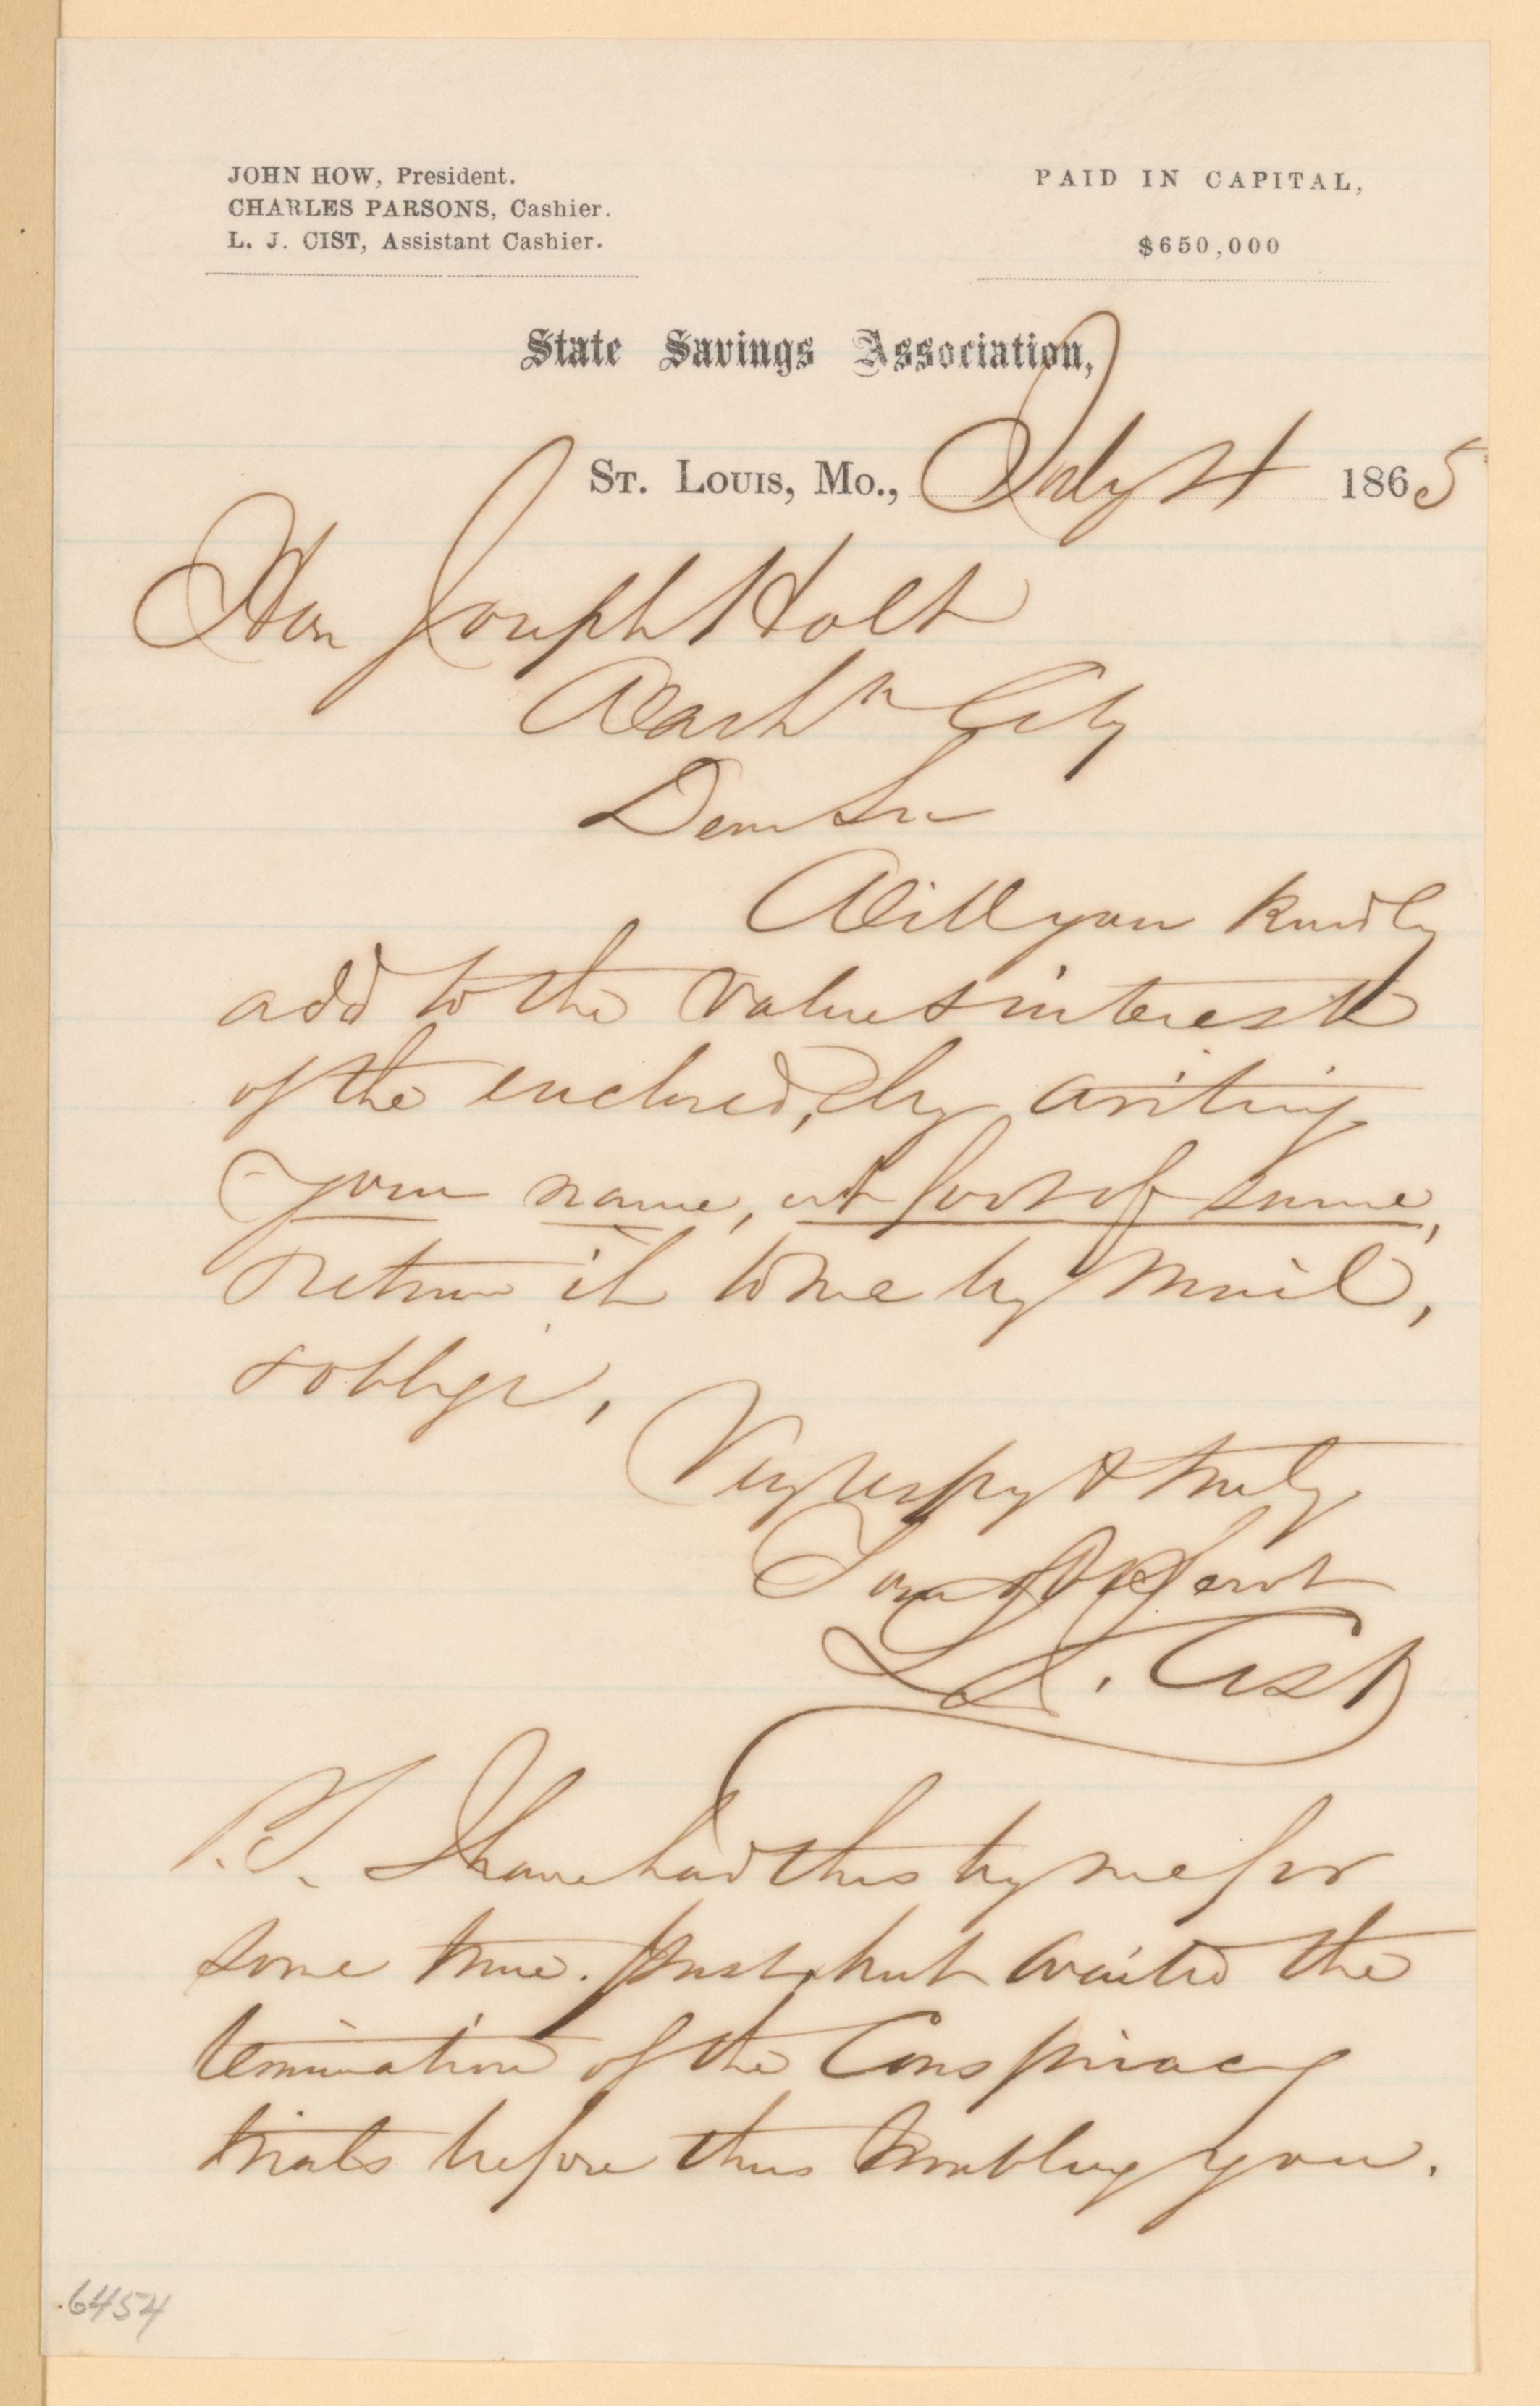 JOHN HOW, President.
CHARLES PARSONS, Cashier.
L. J. CIST, Assistant Cashier.
PAID IN CAPITAL,
$650,000
State Savings Association,
ST. LOUIS, MO., July 4 1865
Hon Joseph Holt
Washn City
Dear Sir
Will you kindly
add to the value & interest
of the enclosed, by writing
your name, at foot of same,
return it to me by mail,
& oblige,
Very respy & truly
Your Obt Servt
L. J. Cist
P.S. I have had this by me for
some time past, but waited the
termination of the Conspiracy
trials before thus troubling you.
6454